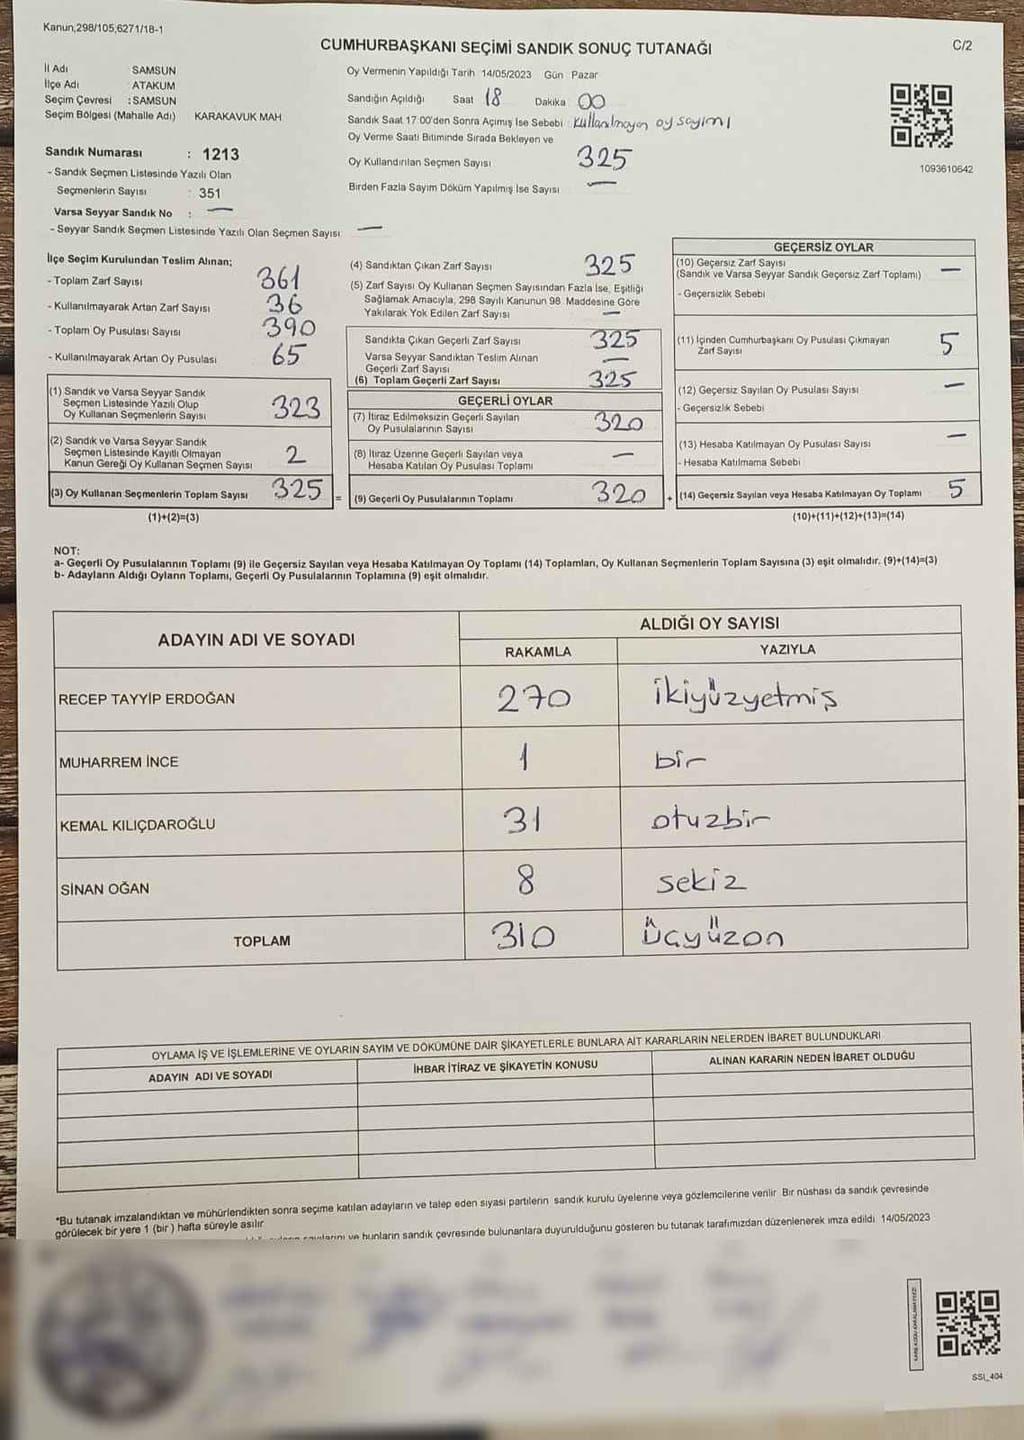 Kanun,298/105,6271/18-1
CUMHURBAŞKANI SEÇİMİ SANDIK SONUÇ TUTANAĞI
C/2
İl Adı SAMSUN
İlçe Adı ATAKUM
Seçim Çevresi : SAMSUN
Seçim Bölgesi (Mahalle Adı) KARAKAVUK MAH
Oy Vermenin Yapıldığı Tarih 14/05/2023 Gün Pazar
Sandığın Açıldığı Saat 18 Dakika 00
Sandık Saat 17:00'den Sonra Açımış İse Sebebi : kullanılmayan oy sayımı
Oy Verme Saati Bitiminde Sırada Bekleyen ve
Oy Kullandırılan Seçmen Sayısı 325
Birden Fazla Sayım Döküm Yapılmış İse Sayısı —
1093610642
Sandık Numarası : 1213
- Sandık Seçmen Listesinde Yazılı Olan
Seçmenlerin Sayısı : 351
Varsa Seyyar Sandık No : —
- Seyyar Sandık Seçmen Listesinde Yazılı Olan Seçmen Sayısı: —
İlçe Seçim Kurulundan Teslim Alınan;
- Toplam Zarf Sayısı 361
- Kullanılmayarak Artan Zarf Sayısı 36
- Toplam Oy Pusulası Sayısı 390
- Kullanılmayarak Artan Oy Pusulası 65
(1) Sandık ve Varsa Seyyar Sandık
Seçmen Listesinde Yazılı Olup
Oy Kullanan Seçmenlerin Sayısı 323
(2) Sandık ve Varsa Seyyar Sandık
Seçmen Listesinde Kayıtlı Olmayan
Kanun Gereği Oy Kullanan Seçmen Sayısı 2
(3) Oy Kullanan Seçmenlerin Toplam Sayısı 325 =
(1)+(2)=(3)
(4) Sandıktan Çıkan Zarf Sayısı 325
(5) Zarf Sayısı Oy Kullanan Seçmen Sayısından Fazla İse, Eşitliği
Sağlamak Amacıyla, 298 Sayılı Kanunun 98. Maddesine Göre
Yakılarak Yok Edilen Zarf Sayısı —
Sandıkta Çıkan Geçerli Zarf Sayısı 325
Varsa Seyyar Sandıktan Teslim Alınan
Geçerli Zarf Sayısı —
(6) Toplam Geçerli Zarf Sayısı 325
GEÇERLİ OYLAR
(7) İtiraz Edilmeksizin Geçerli Sayılan
Oy Pusulalarının Sayısı 320
(8) İtiraz Üzerine Geçerli Sayılan veya
Hesaba Katılan Oy Pusulası Toplamı —
(9) Geçerli Oy Pusulalarının Toplamı 320 +
GEÇERSİZ OYLAR
(10) Geçersiz Zarf Sayısı —
(Sandık ve Varsa Seyyar Sandık Geçersiz Zarf Toplamı)
- Geçersizlik Sebebi
(11) İçinden Cumhurbaşkanı Oy Pusulası Çıkmayan
Zarf Sayısı 5
(12) Geçersiz Sayılan Oy Pusulası Sayısı —
- Geçersizlik Sebebi
(13) Hesaba Katılmayan Oy Pusulası Sayısı —
- Hesaba Katılmama Sebebi
(14) Geçersiz Sayılan veya Hesaba Katılmayan Oy Toplamı 5
(10)+(11)+(12)+(13)=(14)
NOT:
a- Geçerli Oy Pusulalarının Toplamı (9) ile Geçersiz Sayılan veya Hesaba Katılmayan Oy Toplamı (14) Toplamları, Oy Kullanan Seçmenlerin Toplam Sayısına (3) eşit olmalıdır. (9)+(14)=(3)
b- Adayların Aldığı Oyların Toplamı, Geçerli Oy Pusulalarının Toplamına (9) eşit olmalıdır.
ADAYIN ADI VE SOYADI
ALDIĞI OY SAYISI
RAKAMLA YAZIYLA
RECEP TAYYİP ERDOĞAN 270 ikiyüzyetmiş
MUHARREM İNCE 1 bir
KEMAL KILIÇDAROĞLU 31 otuzbir
SİNAN OĞAN 8 sekiz
TOPLAM 310 üçyüzon
OYLAMA İŞ VE İŞLEMLERİNE VE OYLARIN SAYIM VE DÖKÜMÜNE DAİR ŞİKAYETLERLE BUNLARA AİT KARARLARIN NELERDEN İBARET BULUNDUKLARI
ADAYIN ADI VE SOYADI İHBAR İTİRAZ VE ŞİKAYETİN KONUSU ALINAN KARARIN NEDEN İBARET OLDUĞU
*Bu tutanak imzalandıktan ve mühürlendikten sonra seçime katılan adayların ve talep eden siyasi partilerin sandık kurulu üyelerine veya gözlemcilerine verilir Bir nüshası da sandık çevresinde
görülecek bir yere 1 (bir ) hafta süreyle asılır
ve bunların sandık çevresinde bulunanlara duyurulduğunu gösteren bu tutanak tarafımızdan düzenlenerek imza edildi 14/05/2023
SSI_404